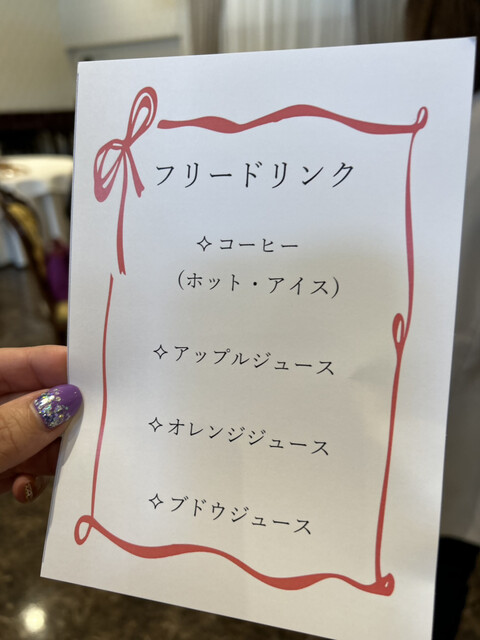 フリードリンク
✧コーヒー
(ホット・アイス)
✧アップルジュース
✧オレンジジュース
✧ブドウジュース